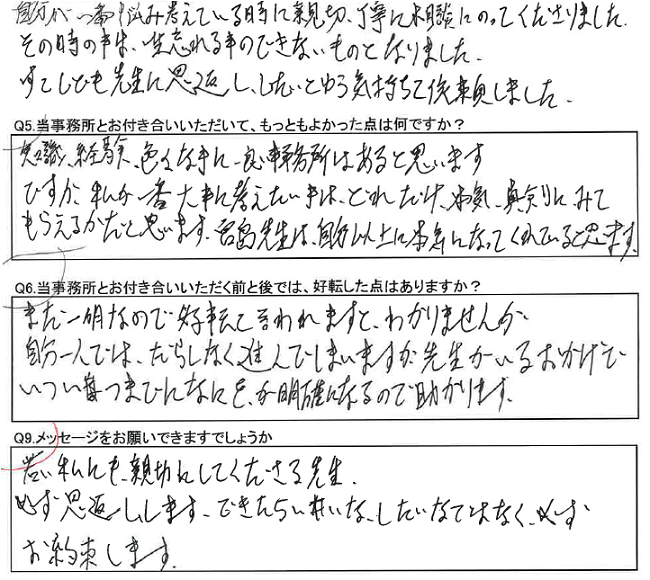 自分が一番悩み考えている時に親切、丁寧に相談にのってくださりました。
その時の事は、一生忘れる事のできないものとなりました。
すこしでも先生に恩返し、したいとゆう気持ちで依頼しました。
Q5.当事務所とお付き合いいただいて、もっともよかった点は何ですか？
知識、経験、色々な事に良い事務所はあると思います
ですが、私が一番大事に考えたい事は、どれだけ、本気、真剣に、みて
もらえるかだと思います。宮島先生は、自分以上に本気になってくれていると思います。
Q6.当事務所とお付き合いいただく前と後では、好転した点はありますか？
まだ一期なので好転と言われますと、わかりませんが
自分一人では、だらしなく進んでしまいますが先生がいるおかげで
いついつまでになにを、が明確になるので助かります。
Q9.メッセージをお願いできますでしょうか
若い私にも、親切にしてくださる先生。
必ず恩返しします。できたらいいな、したいなではなく、必ず
お約束します。